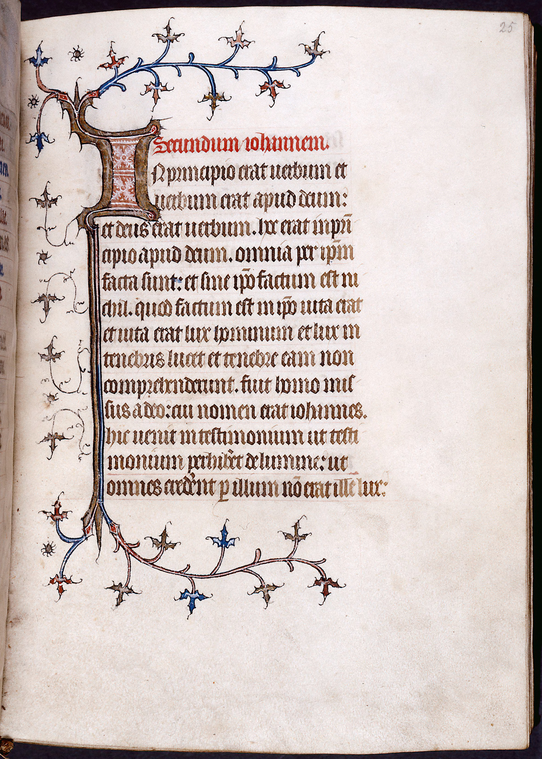 25
Secundum iohannem.
IN principio erat uerbum et
uerbum erat apud deum:
et deus erat uerbum. hoc erat in prin
cipio apud deum. omnia per ipm
facta sunt: et sine ipo factum est ni
chil. quod factum est in ipo uita erat
et uita erat lux hominum et lux in
tenebris lucet et tenebre eam non
comprehenderunt. fuit homo mis
sus a deo: cui nomen erat iohannes.
hic uenit in testimonium ut testi
monium perhibet de lumine: ut
omnes crederent p illum nō erat ille lux: